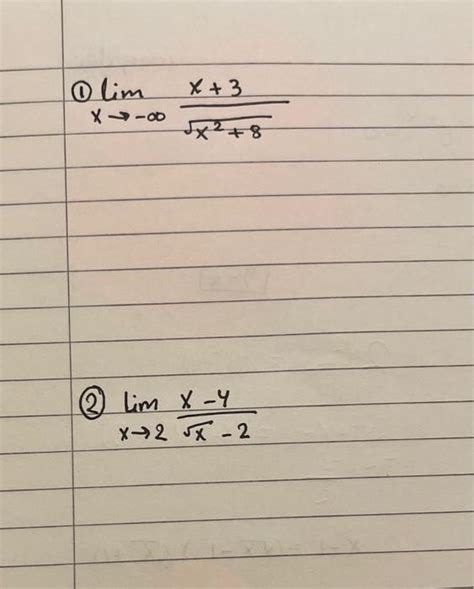 ① lim x + 3
x → -∞ √x² + 8
② lim x - 4
x → 2 √x - 2